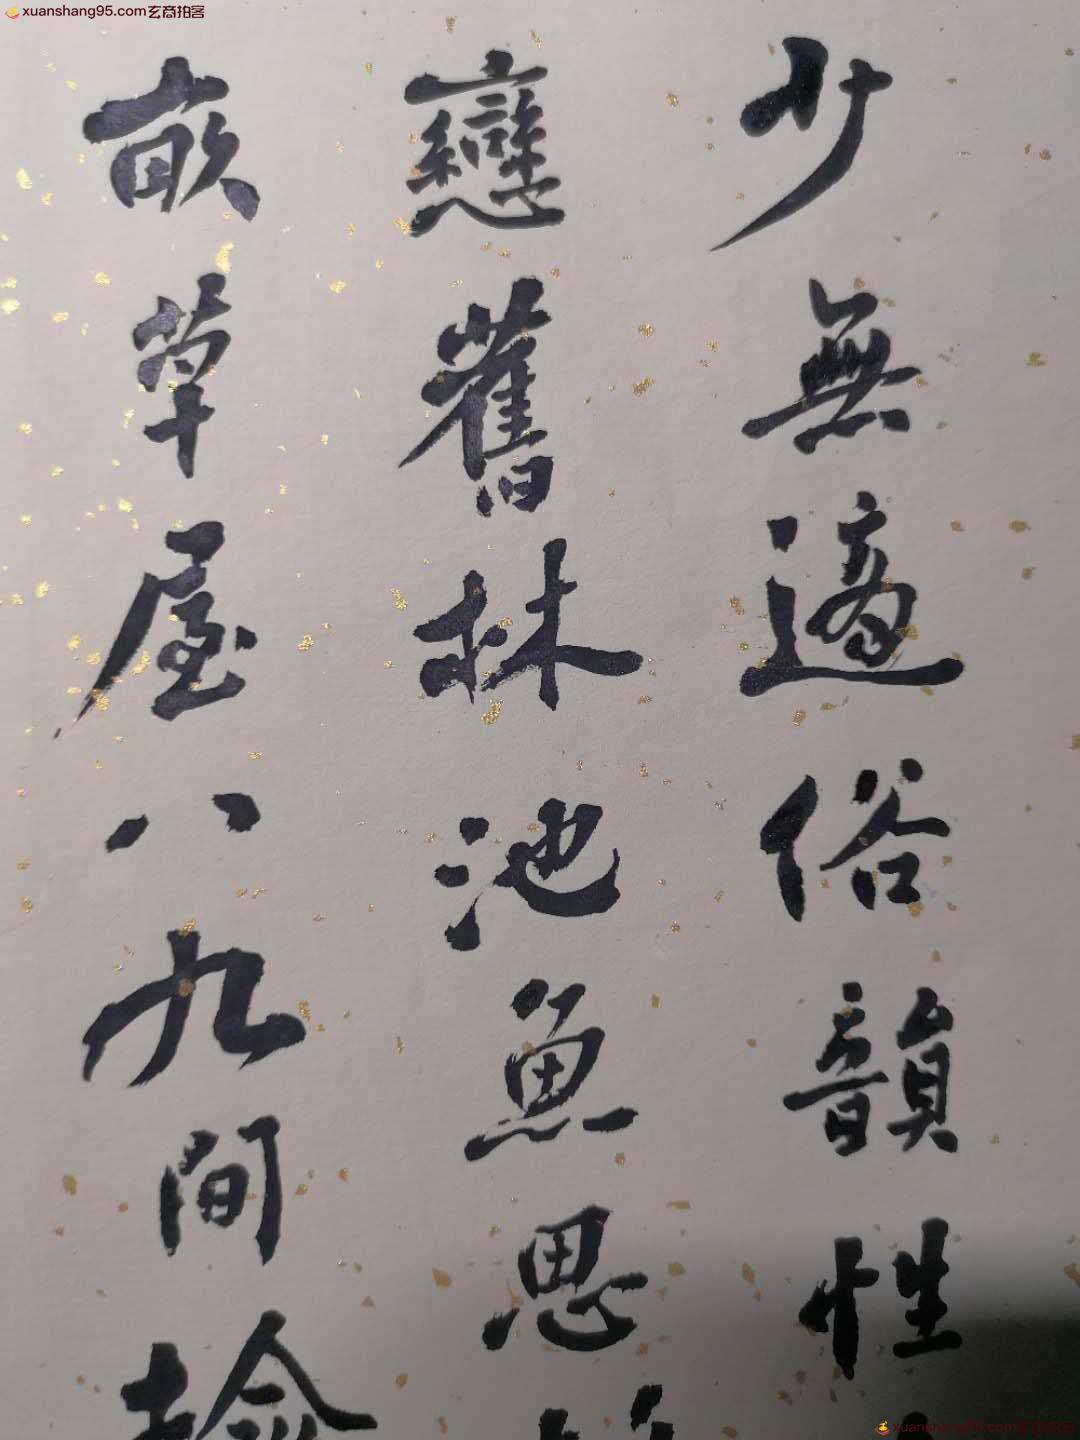 xuanshang95.com玄商拍客
少無適俗韻性
戀舊林池魚思
畝草屋八九間
xuanshang95.com玄商拍客